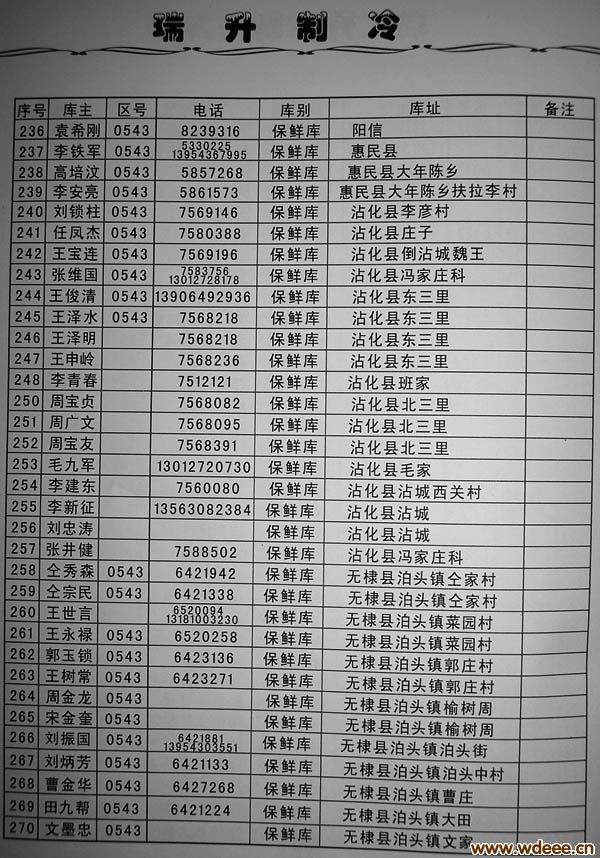 瑞升制冷
序号 库主 区号 电话 库别 库址 备注
236 袁希刚 0543 8239316 保鲜库 阳信
237 李铁军 0543 5330225 13954367995 保鲜库 惠民县
238 高培汶 0543 5857268 保鲜库 惠民县大年陈乡
239 李安亮 0543 5861573 保鲜库 惠民县大年陈乡扶拉李村
240 刘锁柱 0543 7569146 保鲜库 沾化县李彦村
241 任凤杰 0543 7580388 保鲜库 沾化县庄子
242 王宝连 0543 7569196 保鲜库 沾化县倒沾城魏王
243 张维国 0543 7583756 13012728178 保鲜库 沾化县冯家庄科
244 王俊清 0543 13906492936 保鲜库 沾化县东三里
245 王泽水 0543 7568218 保鲜库 沾化县东三里
246 王泽明 7568218 保鲜库 沾化县东三里
247 王申岭 7568236 保鲜库 沾化县东三里
248 李青春 7512121 保鲜库 沾化县班家
250 周宝贞 7568082 保鲜库 沾化县北三里
251 周广文 7568095 保鲜库 沾化县北三里
252 周宝友 7568391 保鲜库 沾化县北三里
253 毛九军 13012720730 保鲜库 沾化县毛家
254 李建东 7560080 保鲜库 沾化县沾城西关村
255 李新征 13563082384 保鲜库 沾化县沾城
256 刘忠涛 保鲜库 沾化县沾城
257 张井健 7588502 保鲜库 沾化县冯家庄科
258 仝秀森 0543 6421942 保鲜库 无棣县泊头镇仝家村
259 仝宗民 0543 6421338 保鲜库 无棣县泊头镇仝家村
260 王世言 6520094 13181003230 保鲜库 无棣县泊头镇菜园村
261 王永禄 0543 6520258 保鲜库 无棣县泊头镇菜园村
262 郭玉锁 0543 6423136 保鲜库 无棣县泊头镇郭庄村
263 王树常 0543 6423271 保鲜库 无棣县泊头镇郭庄村
264 周金龙 0543 保鲜库 无棣县泊头镇榆树周
265 宋金奎 0543 保鲜库 无棣县泊头镇榆树周
266 刘振国 0543 6421881 13954303551 保鲜库 无棣县泊头镇泊头街
267 刘炳芳 0543 6421133 保鲜库 无棣县泊头镇泊头中村
268 曹金华 0543 6427268 保鲜库 无棣县泊头镇曹庄
269 田九帮 0543 6421224 保鲜库 无棣县泊头镇大田
270 文墨忠 0543 保鲜库 无棣县泊头镇文家
www.wdeee.cn